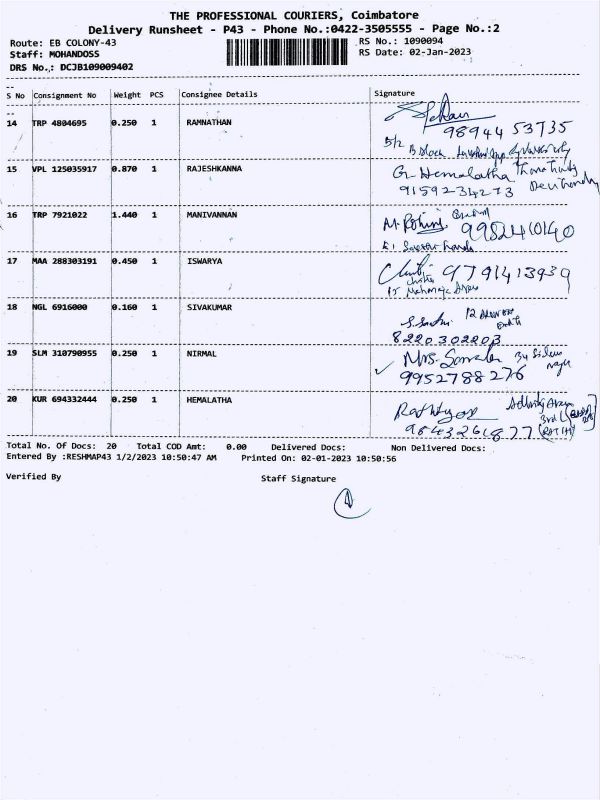 THE PROFESSIONAL COURIERS, Coimbatore
Delivery Runsheet - P43 - Phone No.:0422-3505555 - Page No.:2
Route: EB COLONY-43 RS No.: 1090094
Staff: MOHANDOSS RS Date: 02-Jan-2023
DRS No.: DCJB109009402
S No Consignment No Weight PCS Consignee Details Signature
14 TRP 4804695 0.250 1 RAMNATHAN
98944 53735
5/2 B Block
15 VPL 125035917 0.870 1 RAJESHKANNA G. Hemalatha
9159234273
16 TRP 7921022 1.440 1 MANIVANNAN M. Rohini
9952410140
17 MAA 288303191 0.450 1 ISWARYA 9791413939
18 NGL 6916000 0.160 1 SIVAKUMAR
8220302203
19 SLM 310790955 0.250 1 NIRMAL Mrs.
9952788276
20 KUR 694332444 0.250 1 HEMALATHA
9843261877
Total No. Of Docs: 20 Total COD Amt: 0.00 Delivered Docs: Non Delivered Docs:
Entered By :RESHMAP43 1/2/2023 10:50:47 AM Printed On: 02-01-2023 10:50:56
Verified By Staff Signature